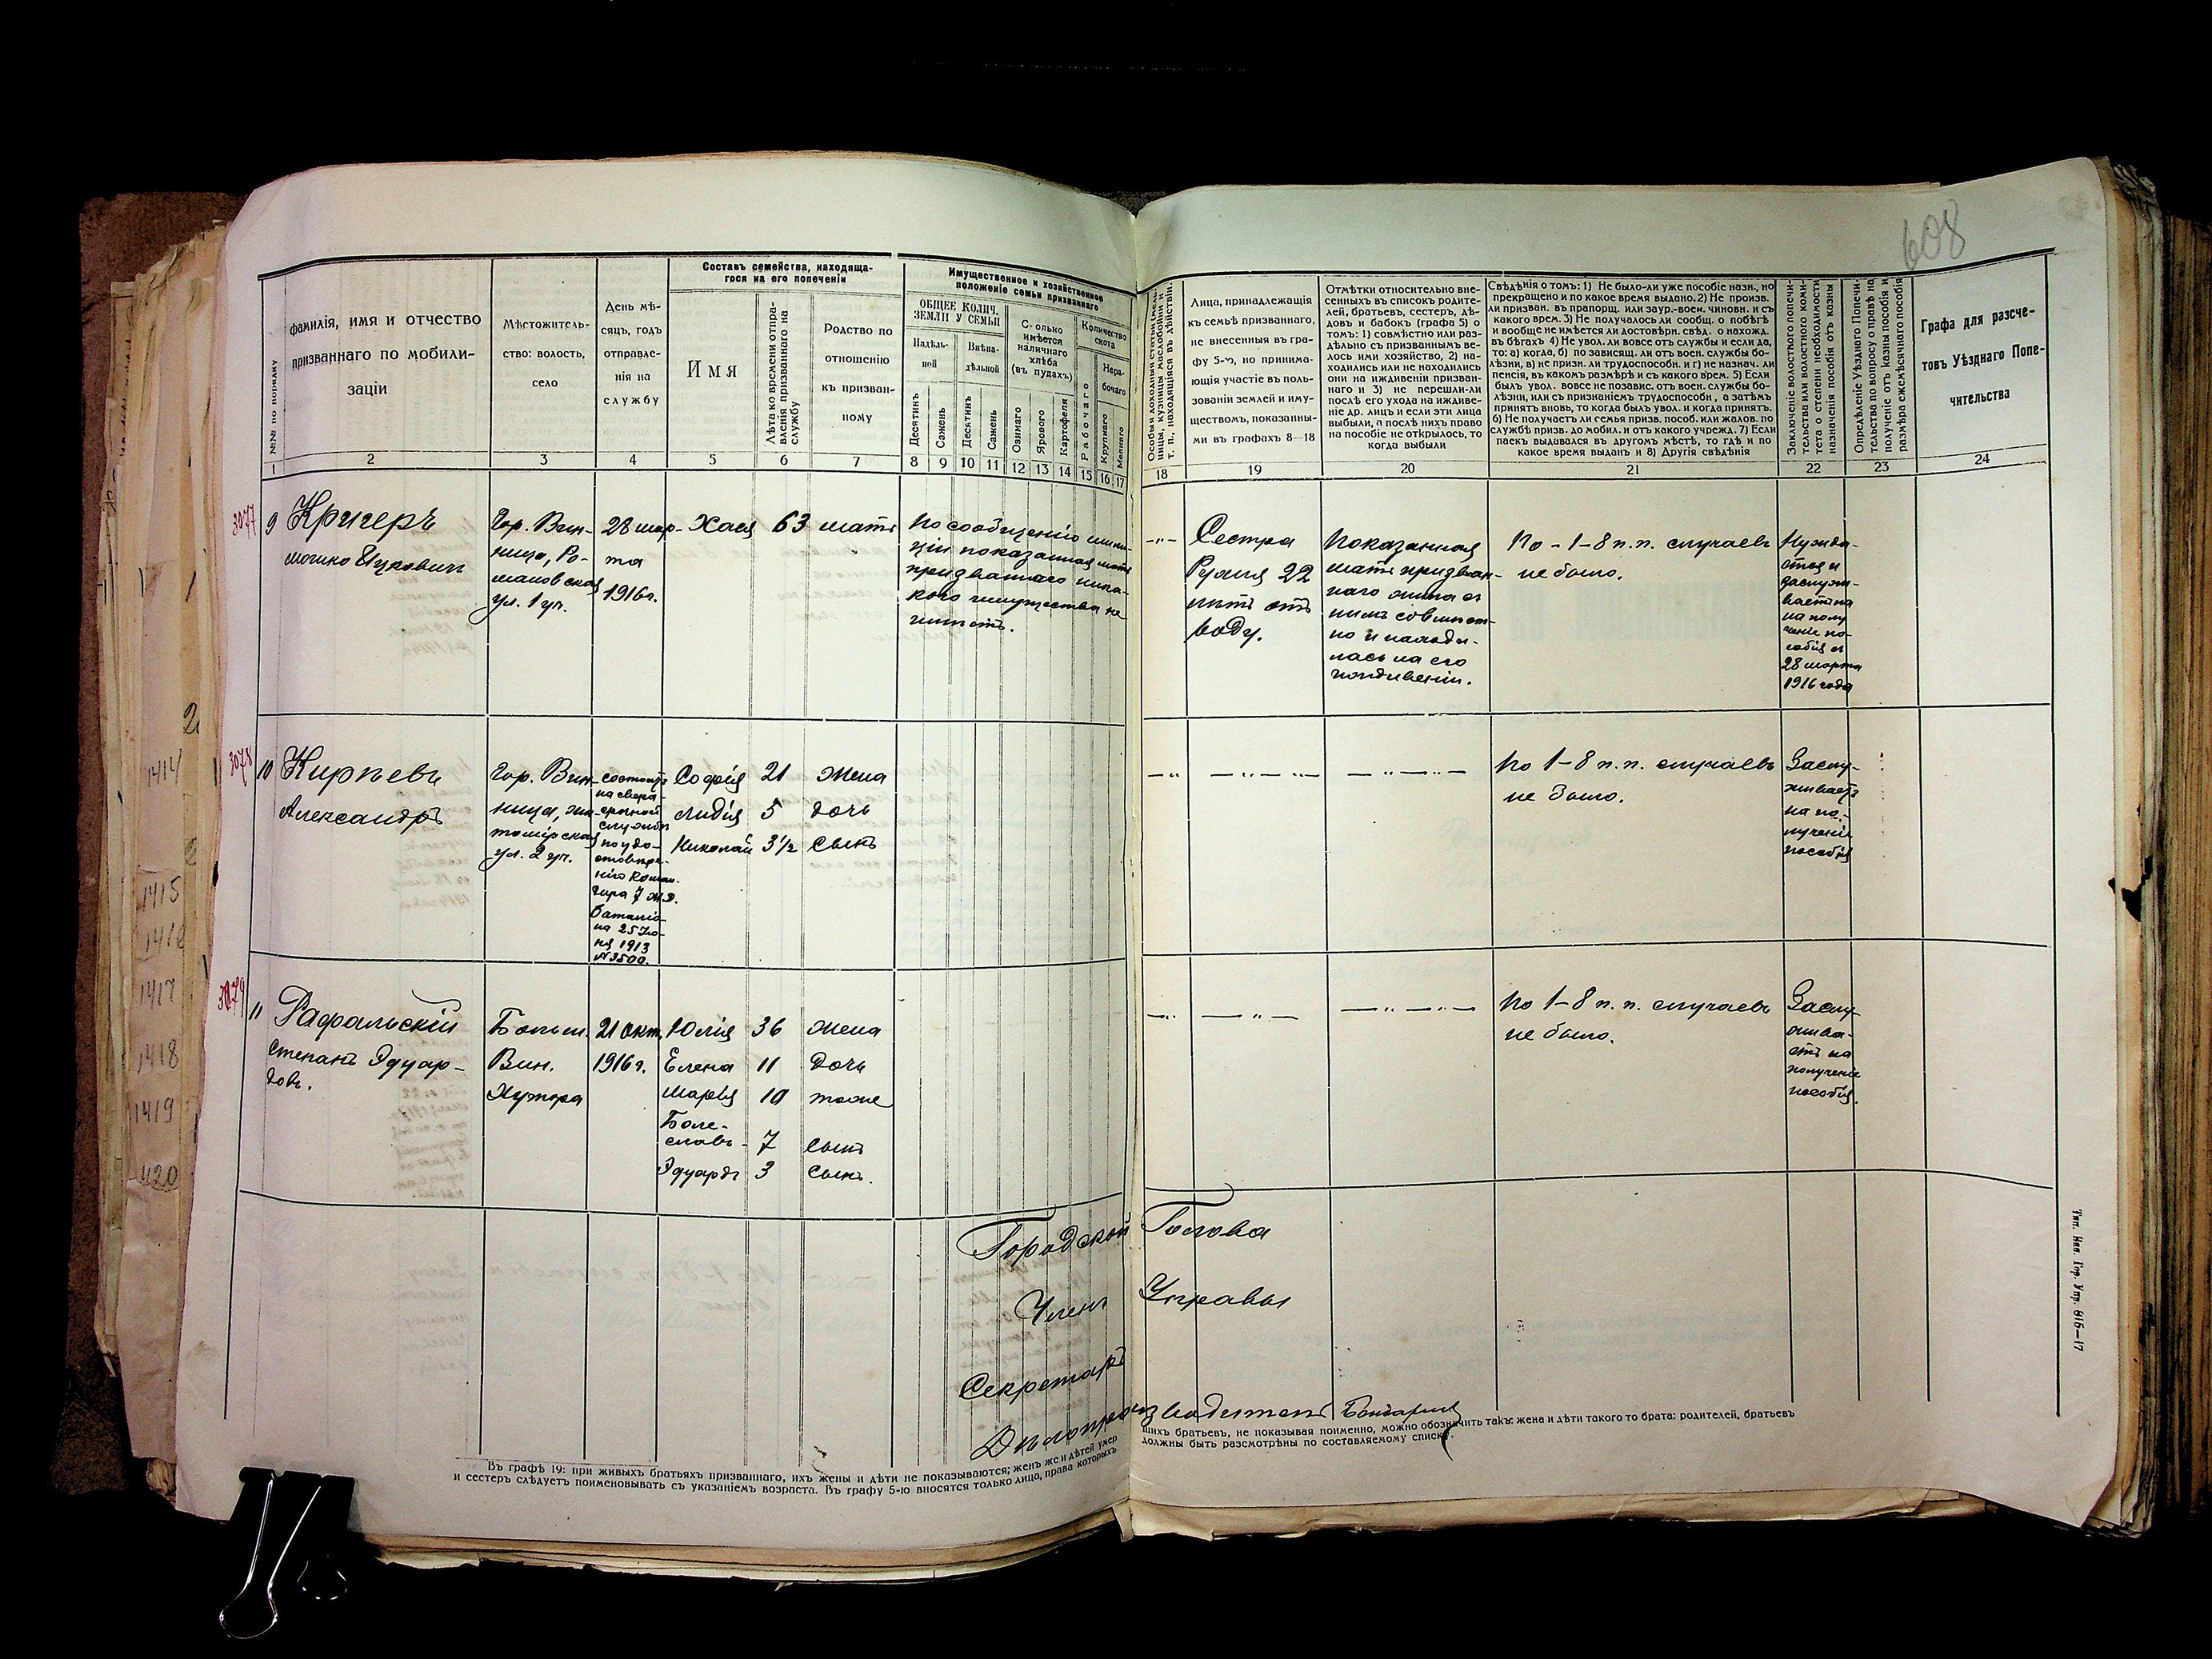 608
Составъ семейства, находяща-
гося на его попеченіи
Имущественное и хозяйственное
положеніе семьи призваннаго
№№ по порядку
фамилія, имя и отчество
призваннаго по мобили-
заціи
Мѣстожитель-
ство: волость,
село
День мѣ-
сяцъ, годъ
отправле-
нія на
службу
Имя
Лѣта ко времени отпра-
вленія призваннаго на
службу
Родство по
отношенію
къ призван-
ному
ОБЩЕЕ КОЛИЧ.
ЗЕМЛИ У СЕМЬИ
Надѣль-
ной
Внѣна-
дѣльной
Десятинъ
Сажень
Десятинъ
Сажень
Сколько
имѣется
наличнаго
хлѣба
(въ пудахъ)
Озимаго
Яроваго
Картофеля
Количество
скота
Рабочаго
Нера-
бочаго
Крупнаго
Мелкаго
Лица, принадлежащія
къ семьѣ призваннаго,
не внесенныя въ гра-
фу 5-ю, но принима-
ющія участіе въ поль-
зованіи землей и иму-
ществомъ, показанны-
ми въ графахъ 8—18
Отмѣтки относительно вне-
сенныхъ въ списокъ родите-
лей, братьевъ, сестеръ, дѣ-
довъ и бабокъ (графа 5) о
томъ: 1) совмѣстно или раз-
дѣльно съ призваннымъ ве-
лось ими хозяйство, 2) на-
ходились или не находились
они на иждивеніи призван-
наго и 3) не перешли-ли
послѣ его ухода на иждиве-
ніе др. лицъ и если эти лица
выбыли, а послѣ нихъ право
на пособіе не открылось, то
когда выбыли
Свѣдѣнія о томъ: 1) Не было-ли уже пособіе назн., но
прекращено и по какое время выдано. 2) Не произв.
ли призван. въ прапорщ. или заур.-воен. чиновн. и съ
какого врем. 3) Не получалось ли сообщ. о побѣгѣ
и вообще не имѣется ли достовѣрн. свѣд. о нахожд.
въ бѣгахъ 4) Не увол. ли вовсе отъ службы и если да,
то: а) когда, б) по зависящ. ли отъ воен. службы бо-
лѣзни, в) не призн. ли трудоспособн. и г) не назнач. ли
пенсія, въ какомъ размѣрѣ и съ какого врем. 5) Если
былъ увол. вовсе не позавис. отъ воен. службы бо-
лѣзни, или съ признаніемъ трудоспособн , а затѣмъ
принятъ вновь, то когда былъ увол. и когда принятъ.
6) Не получаетъ ли семья призв. пособ. или жалов. по
службѣ призв. до мобил. и отъ какого учрежд. 7) Если
паекъ выдавался въ другомъ мѣстѣ, то гдѣ и по
какое время выданъ и 8) Другія свѣдѣнія
Заключеніе волостного попечи-
тельства или волостного коми-
тета о степени необходимости
назначенія пособія отъ казны
Опредѣленіе Уѣзднаго Попечи-
тельства по вопросу о правѣ на
полученіе отъ казны пособія и
размѣра ежемѣсячнаго пособія
Графа для разсче-
товъ Уѣзднаго Попе-
чительства
1 2 3 4 5 6 7 8 9 10 11 12 13 14 15 16 17 18 19 20 21 22 23 24
3077
9 Кригеръ
Мошко Ицковичъ
Гор. Вин-
ница, Ро-
мановская
ул. 1 уч.
28 мар-
та
1916 г.
Хася 63 мать
По сообщенію
показанная мать
призваннаго ника-
кого имущества не
имѣетъ.
—"—
Сестра
22
лѣтъ
Показанная
мать призван-
наго жила съ
нимъ совмѣст-
но и находи-
лась на его
иждивеніи.
По - 1-8 п.п. случаевъ
не было.
Нужда-
ется и
заслужи-
ваетъ на
на полу
ченіе по-
собія съ
28 марта
1916 года
3078
10 Кирѣевъ
Александръ
Гор. Вин-
ница, Жи-
томірская
ул. 2 уч.
состоитъ
на сверх-
срочной
службѣ
по удо-
стовѣре-
нію Коман-
дира 7 Ж.Д.
баталіо-
на 25 Iю-
ня 1913
№ 3500.
Софія 21 жена
Лидія 5 дочь
Николай 3½ сынъ
По 1-8 п.п. случаевъ
не было.
Заслу-
живаетъ
на по-
лученіе
пособія
3079
11 Рафальскій
Степанъ Эдуар-
дов.
Больш.
Вин.
Хутора
21 окт.
1916 г.
Юлія 36 жена
Елена 11 дочь
Марья 10 тоже
Боле-
славъ - 7 сынъ
Эдуардъ 3 сынъ.
По 1-8 п.п. случаевъ
не было.
Заслу-
жива-
етъ на
полученіе
пособія.
Городской Голова
Членъ Управы
Секретарь
Дѣлопроизводитель
Въ графѣ 19: при живыхъ братьяхъ призваннаго, ихъ жены и дѣти не показываются; женъ же и дѣтей умер
шихъ братьевъ, не показывая поименно, можно обозначить такъ: жена и дѣти такого то брата: родителей, братьевъ
и сестеръ слѣдуетъ поименовывать съ указаніемъ возраста. Въ графу 5-ю вносятся только лица, права которыхъ
должны быть разсмотрѣны по составляемому списку.
1414
1415
1416
1417
1418
1419
420